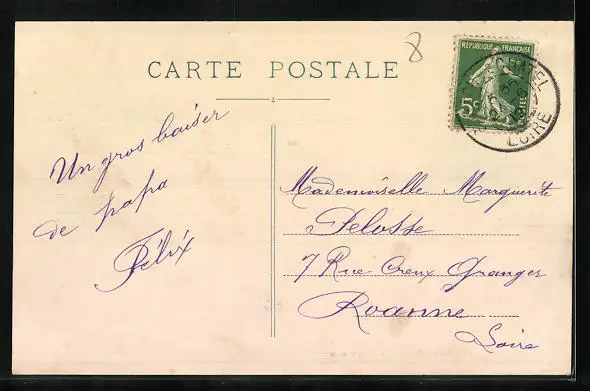 8
CARTE POSTALE
REPUBLIQUE FRANÇAISE
5c
POSTES
CHATEL
LOIRE
Un gros baiser
de papa
Félix
Mademoiselle Marguerite
Pelosse
7 Rue Creux Granger
Roanne
Loire